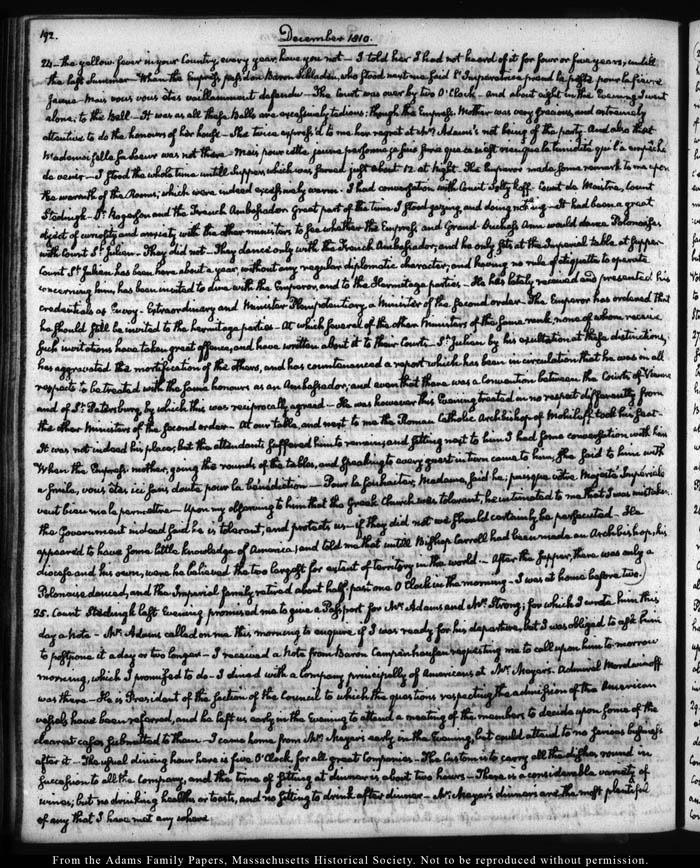 192.
December 1810.
24. the yellow fever in your Country, every year, have you not — I told her I had not heard of it for four or five years, untill
the last Summer — When the Empress pass'd on Baron Schladen, who stood next me said la peste pour la fievre
Jaune — mais vous vous êtes vaillamment defendu — The Court was over by two O'Clock — and about eight in the Evening I went
alone, to the Ball — It was as all these Balls are excessively tedious; though the Empress Mother was very gracious, and extremely
attentive to do the honours of her house — She twice express'd to me her regret at Mrs Adams's not being of the party. And also that
Mademoiselle sa soeur was not there — Mais pour cette jeune personne je suis sure que ce n'est rien que la timidité qui l'a empêché
de venir — I stood the whole time untill Supper which was served just about 12 at Night. The Emperor made some remark to me upon
the warmth of the Rooms; which were indeed excessively warm — I had conversation with Count Soltykoff. Count de Maistre, Count
Stedingk — and the French Ambassador. Great part of the time I stood gazing, and doing nothing — It had been a great
object of curiosity and anxiety with the other ministers to see whether the Empress and Grand-Duchess Ann would dance Polonaises
with Count St Julien — They did not — They dance only with the French Ambassador; and he only sits at the Imperial table at Supper.
Count St Julien has been here about a year, without any regular diplomatic character; and having no rule of etiquette to operate
concerning him, has been invited to dine with the Emperor, and to the Hermitage parties — He has lately received and presented his
credentials as Envoy-Extraordinary and Minister Plenipotentiary, a Minister of the second order. The Emperor has ordered that
he should still be invited to the hermitage parties — At which several of the other Ministers of the same rank, none of whom receive
such invitations have taken great offence, and have written about it to their Courts — St Julien by his exultation at these distinctions,
has aggravated the mortification of the others, and has countenanced a report which has been in circulation that he was in all
respects to be treated with the same honours as an Ambassador, and even that there was a Convention between the Courts of Vienna
and of St Petersburg, by which this was reciprocally agreed — He was however this Evening treated in no respect differently from
the other Ministers of the second order — At our table, and next to me the Roman Catholic Archbishop of Mohiloff, took his seat —
It was not indeed his place, but the attendants suffered him to remain; and sitting next to him I had some conversation with him
When the Empress-mother, going the rounds of the tables, and speaking to every guest in turn came to him, She said to him with
a smile, vous êtes ici sans doute pour la bénédiction — Pour la souhaiter, Madame, said he; puisque vôtre Majesté Impériale
veut bien me le permettre — Upon my observing to him that the Greek Church was tolerant, he intimated to me that I was mistaken.
the Government indeed said he is tolerant, and protects us — if they did not we should certainly be persecuted — He
appeared to have some little knowledge of America; and told me that untill Bishop Carroll had been made an Archbishop, his
diocese and his own, were he believed the two largest for extent of territory in the world. — After the supper, there was only a
Polonaise danced, and the Imperial family retired about half past one O'Clock in the morning — I was at home before two.
25. Count Stedingk last Evening promised me to give a Passport for Mr Adams and Mr Strong; for which I wrote him this
day a Note — Mr Adams called on me this morning to enquire if I was ready for his departure, but I was obliged to ask him
to postpone it a day or two longer — I received a Note from Baron Campenhausen requesting me to call upon him to-morrow
morning, which I promised to do — I dined with a Company principally of Americans at Mr Meyer's. Admiral Mordwinoff
was there — He is President of the section of the Council to which the questions respecting the admission of the American
vessels have been referred, and he left us early in the Evening to attend a meeting of the members to decide upon some of the
clearest cases submitted to them — I came home from Mr Meyer's early in the Evening, but could attend to no serious business
after it — The usual dining hour here is five O'Clock, for all great Companies — The Custom is to carry all the dishes round in
succession to all the Company, and the time of sitting at dinner is about two hours — There is a considerable variety of
wines; but no drinking healths or toasts, and no sitting to drink after dinner — Mr Meyer's dinners are the most plentiful
of any that I have met any where
From the Adams Family Papers, Massachusetts Historical Society. Not to be reproduced without permission.